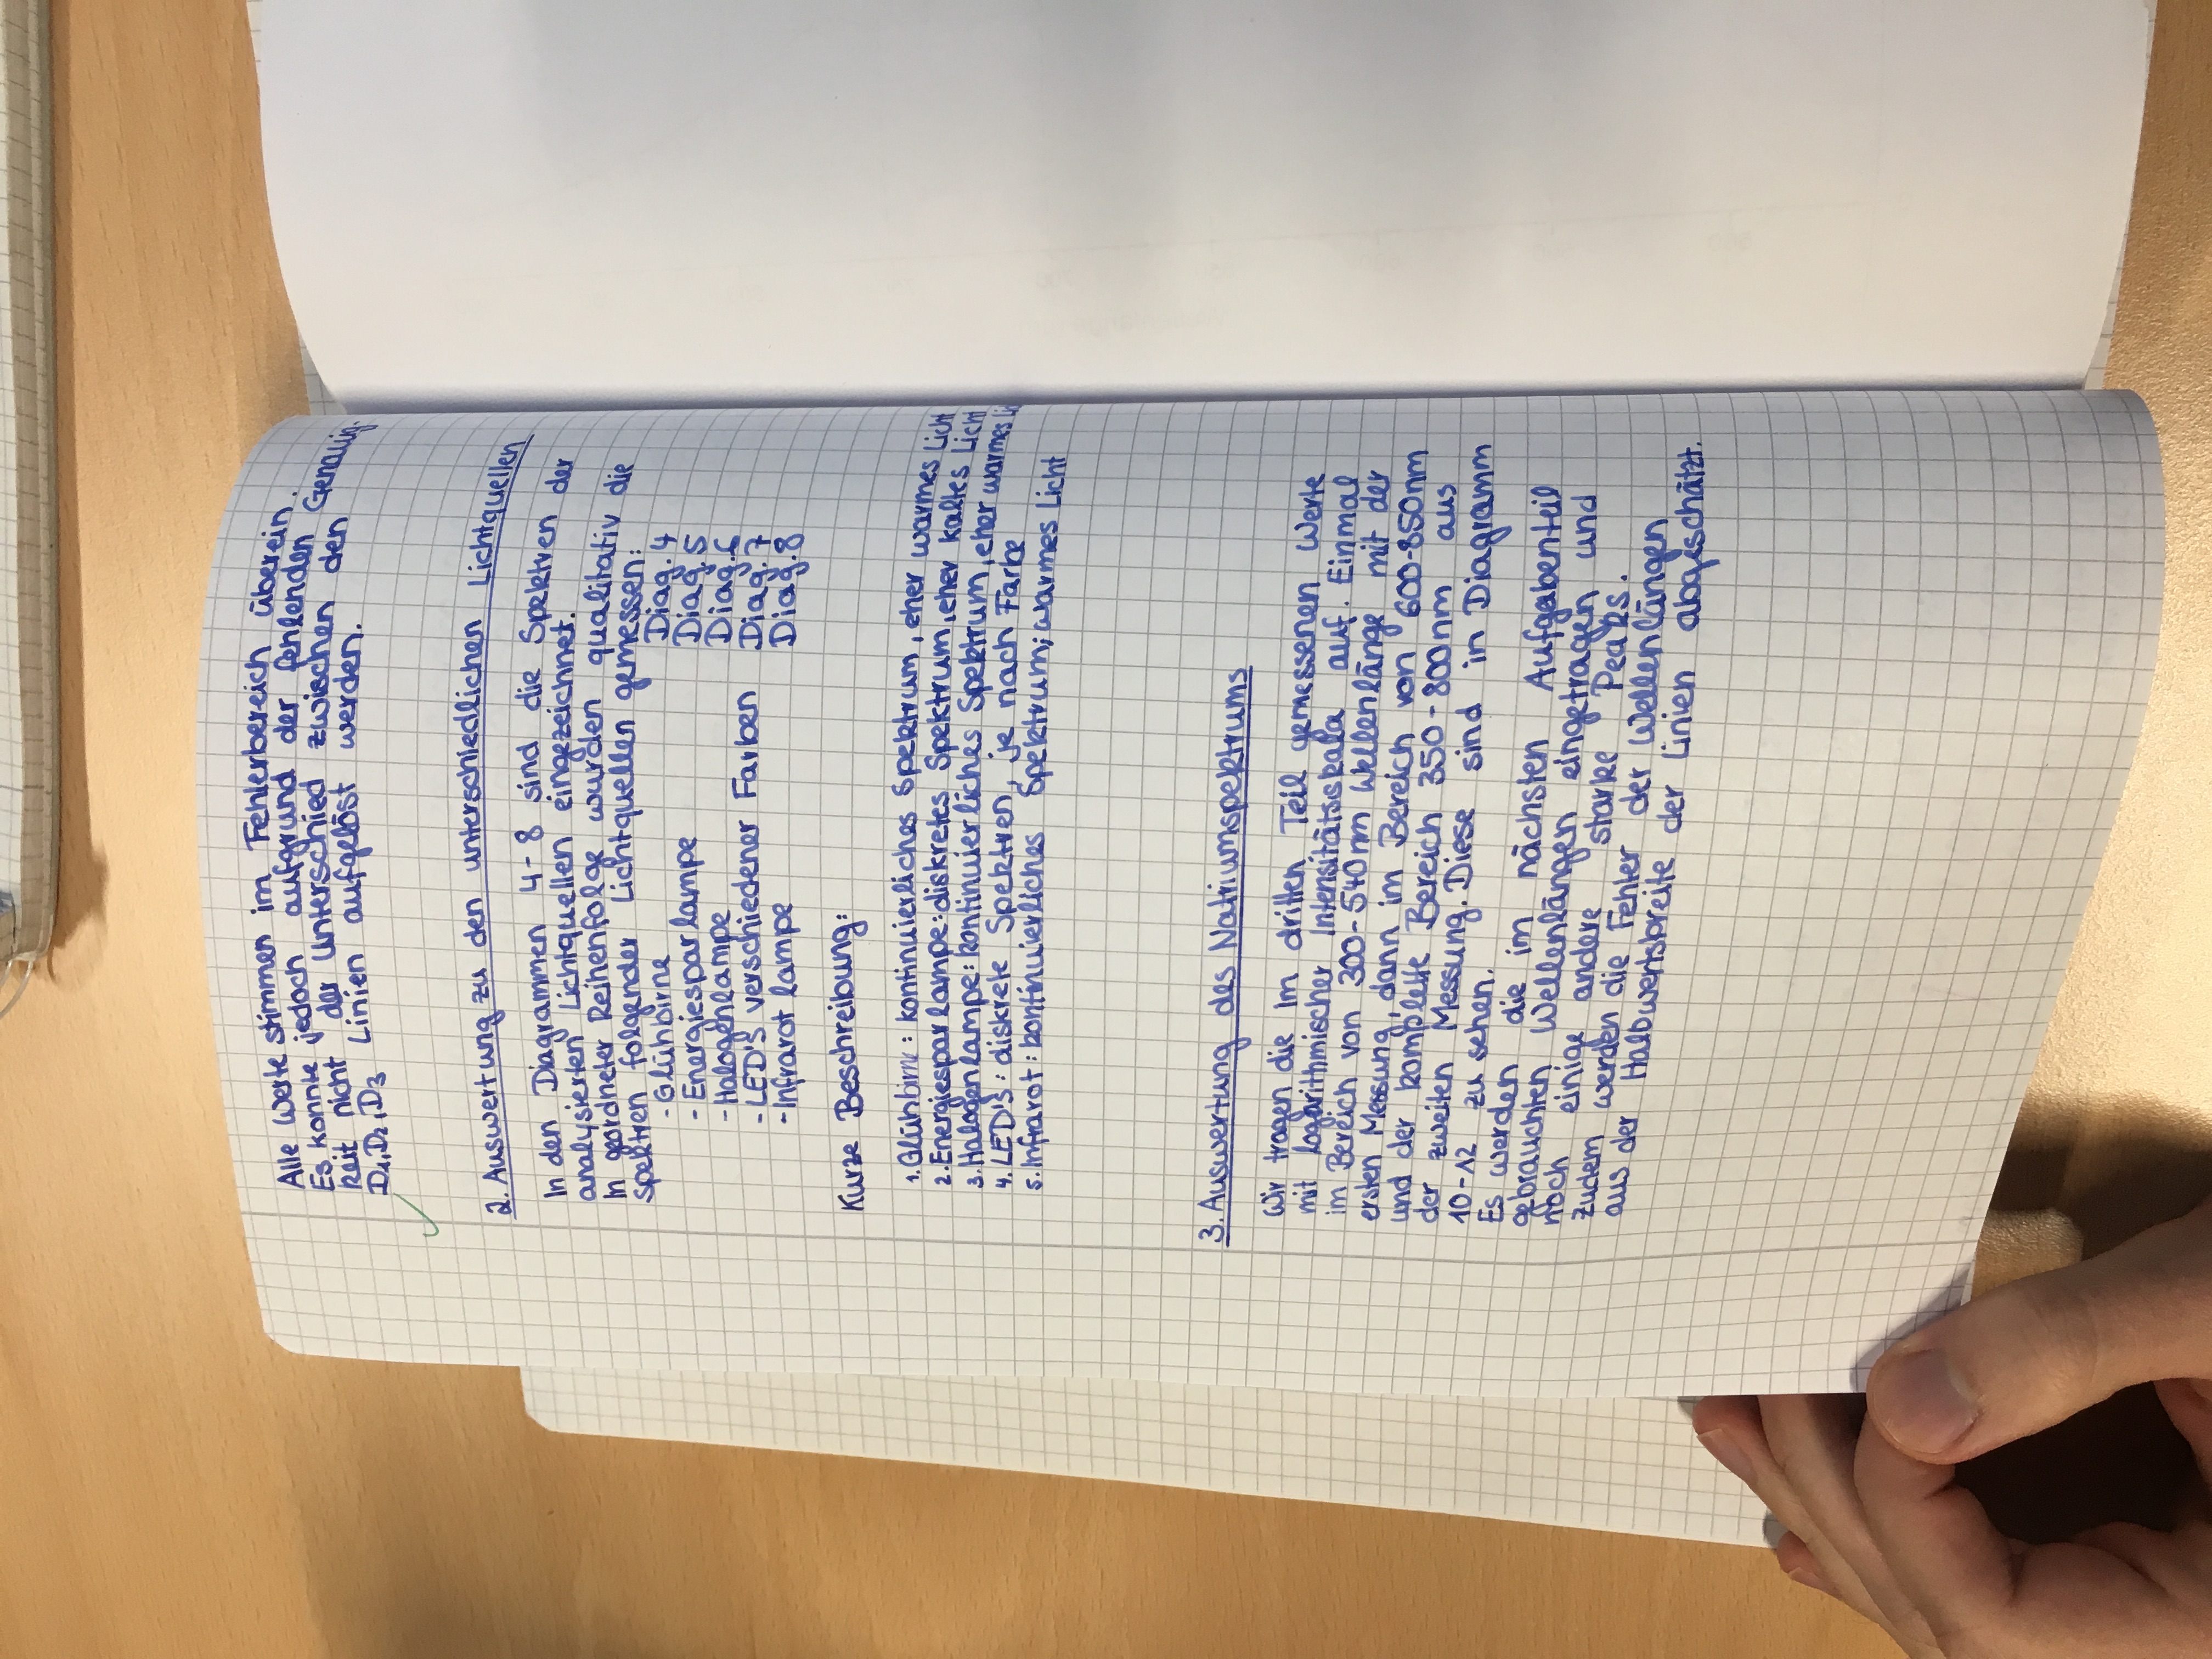 Alle Werte stimmen im Fehlerbereich überein.
Es konnte jedoch aufgrund der fehlenden Genauig-
keit nicht der Unterschied zwischen den
D1, D2, D3 Linien aufgelöst werden.
2. Auswertung zu den unterschiedlichen Lichtquellen
In den Diagrammen 4-8 sind die Spektren der
analysierten Lichtquellen eingezeichnet.
In geordneter Reihenfolge wurden qualitativ die
spektren folgender Lichtquellen gemessen:
- Glühbirne Diag. 4
- Energiesparlampe Diag. 5
- Halogenlampe Diag. 6
- LED's verschiedener Farben Diag. 7
- Infrarot lampe Diag. 8
Kurze Beschreibung:
1. Glühbirne: kontinuierliches Spektrum, eher warmes Licht
2. Energiesparlampe: diskretes Spektrum, eher kaltes Licht
3. Halogenlampe: kontinuierliches Spektrum, eher warmes
4. LED's: diskrete Spektren, je nach Farbe
5. Infrarot: kontinuierliches Spektrum; warmes Licht
3. Auswertung des Natriumspektrums
Wir tragen die im dritten Teil gemessenen Werte
mit logarithmischer Intensitätsskala auf. Einmal
im Bereich von 300-540nm Wellenlänge mit der
ersten Messung, dann im Bereich von 600-850nm
und der komplette Bereich 350-800nm aus
der zweiten Messung. Diese sind in Diagramm
10-12 zu sehen.
Es werden die im nächsten Aufgabenteil
gebrauchten Wellenlängen eingetragen und
noch einige andere starke Peaks.
Zudem werden die Fehler der Wellenlängen
aus der Halbwertsbreite der Linien abgeschätzt.